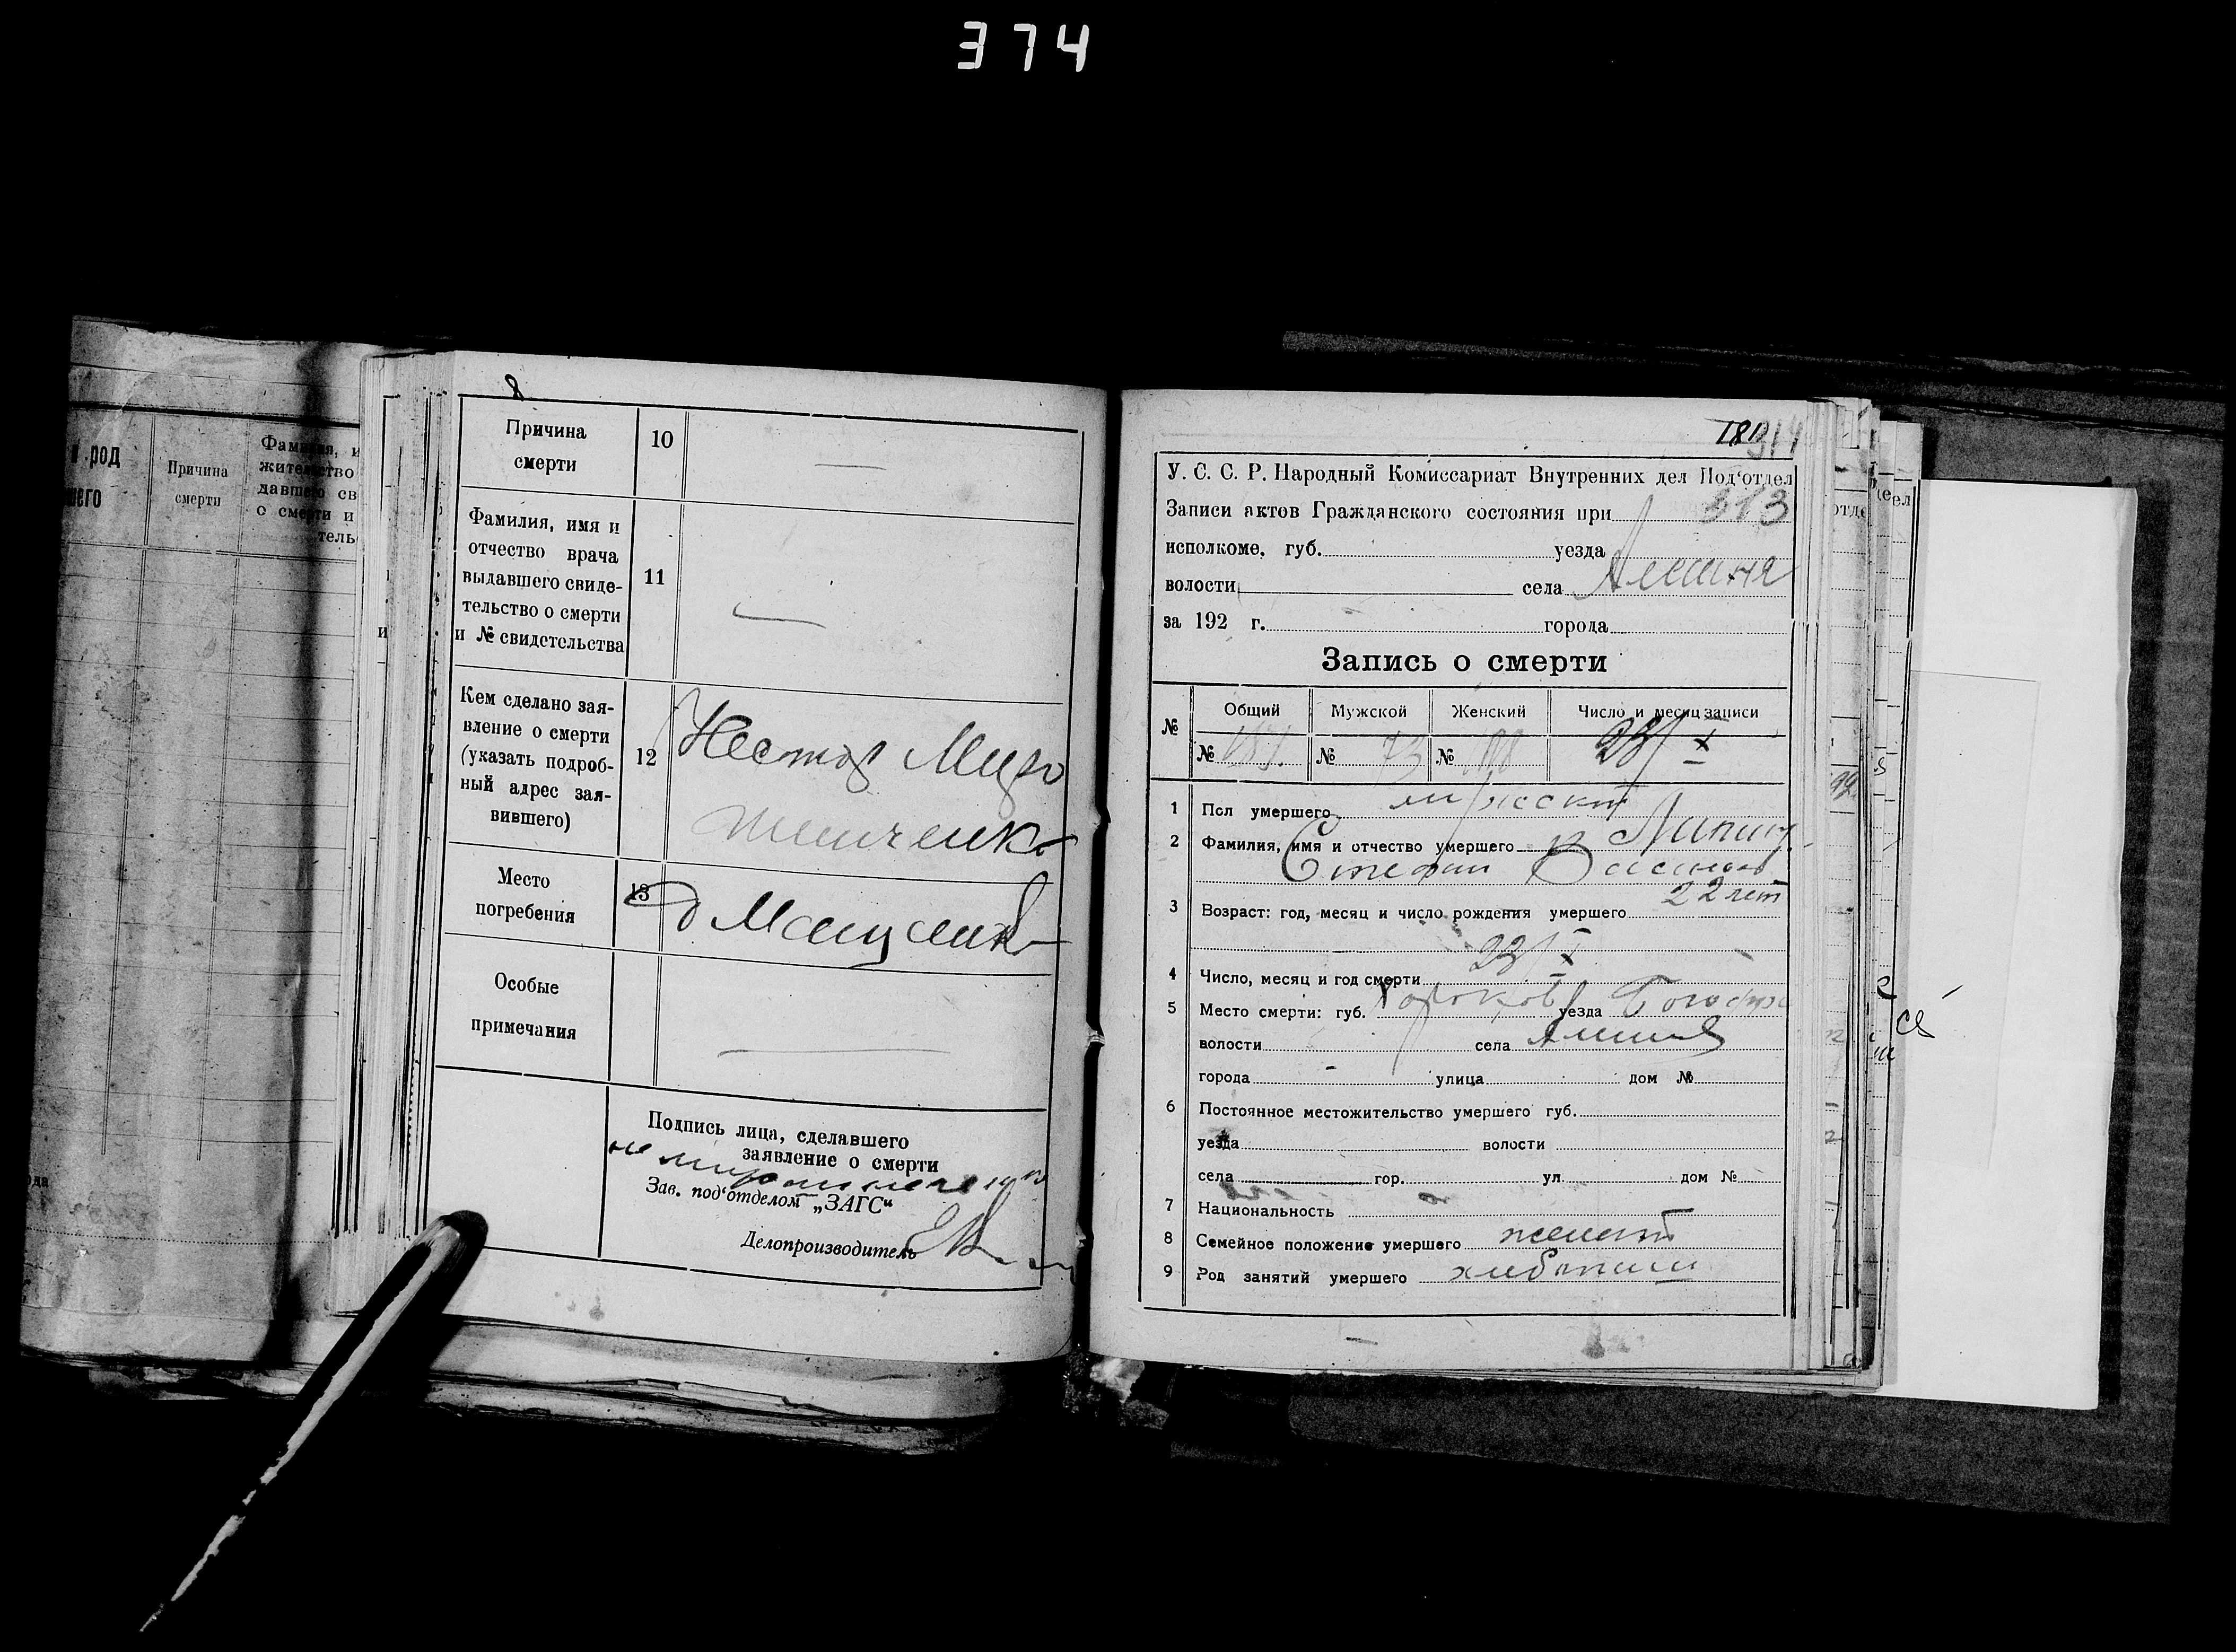 374
и род
шего
Причина
смерти
8
Причина
смерти
10
—
Фамилия, имя и
отчество врача
выдавшего свиде-
тельство о смерти
и № свидетельства
11
—
Кем сделано зая-
вление о смерти
(указать подроб-
ный адрес зая-
вившего)
12
Нестор Миро
шниченко
Место
погребения
13
Особые
примечания
Подпись лица, сделавшего
заявление о смерти
Зав. под‘отделом „ЗАГС“
Делопроизводитель
У. С. С. Р. Народный Комиссариат Внутренних дел Под‘отдел
Записи актов Гражданского состояния при 313
исполкоме, губ. уезда
волости села
за 192 г. города
Запись о смерти
№ Общий Мужской Женский Число и месяц записи
№ 181 № 73 № 23/X
1 Пол умершего мужской
2 Фамилия, имя и отчество умершего
Стефан
3 Возраст: год, месяц и число рождения умершего 22 лет
4 Число, месяц и год смерти 23/X
5 Место смерти: губ. Харьков уезда Богодух
волости села
города улица дом №
6 Постоянное местожительство умершего губ.
уезда волости
села гор. ул. дом №
7 Национальность
8 Семейное положение умершего женат
9 Род занятий умершего хлебопаш